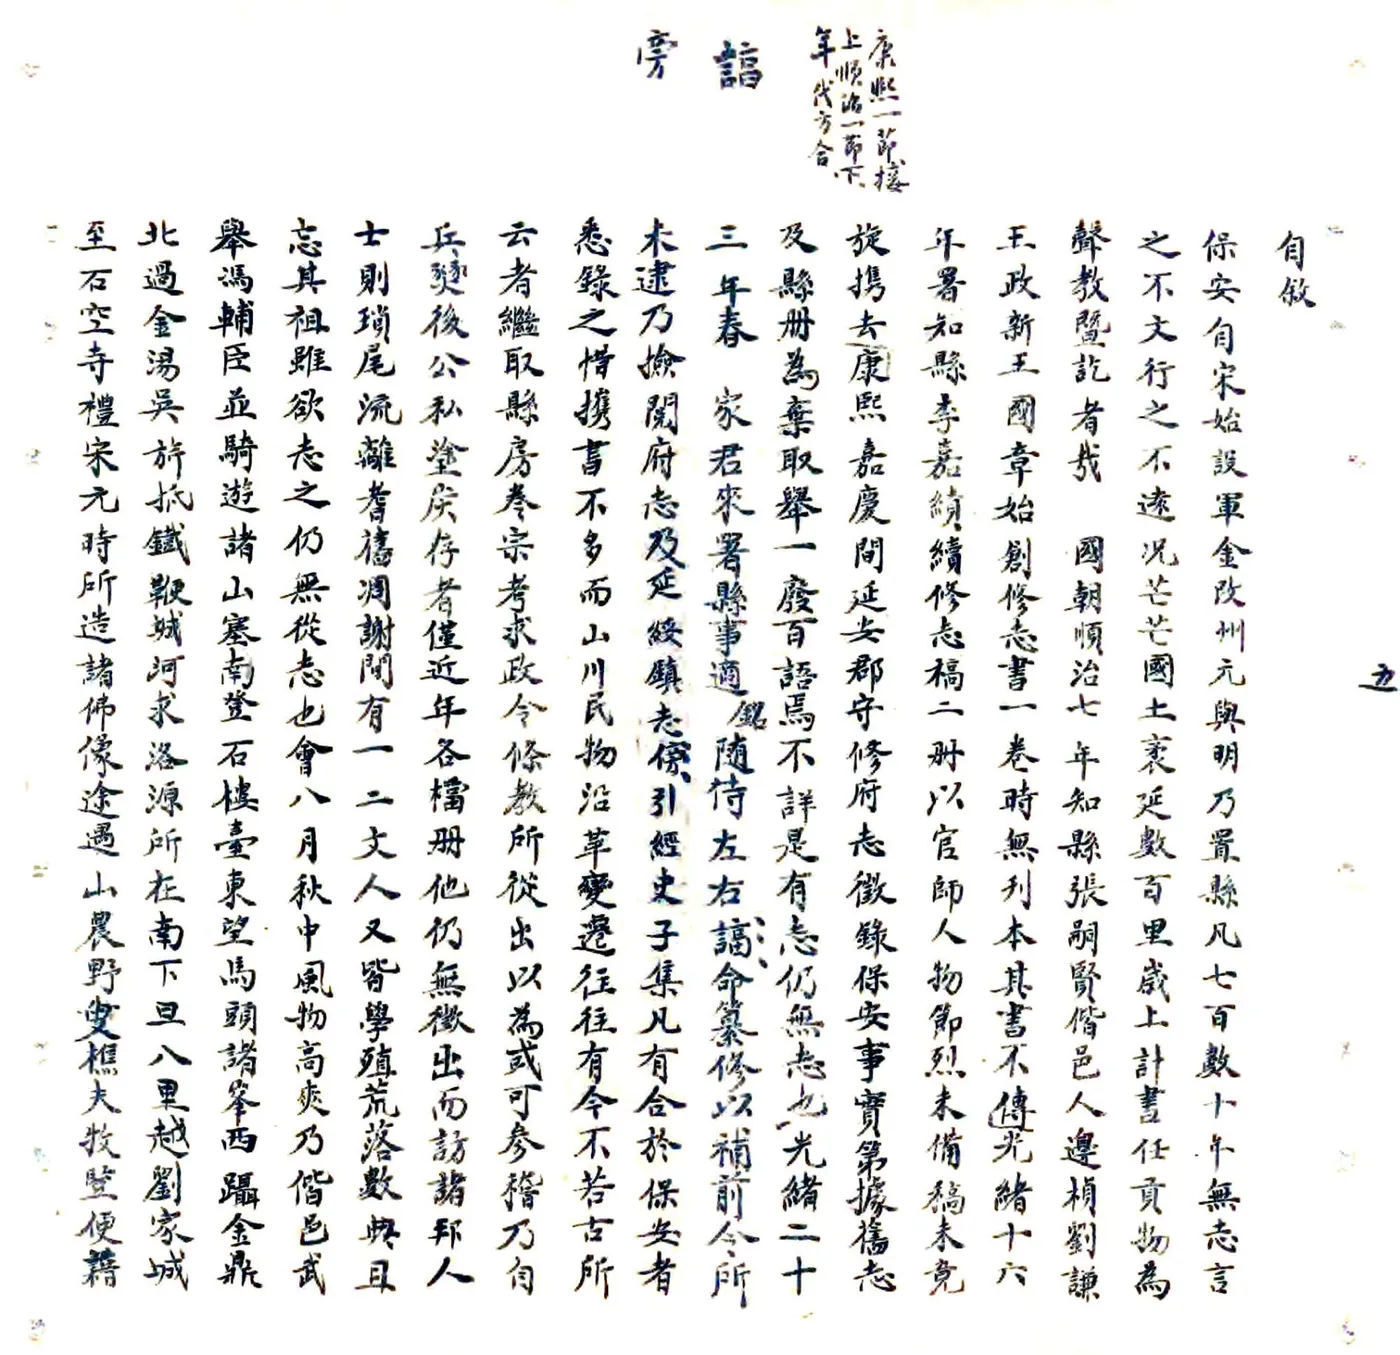 康熙一節接
上順治一節下
年代方合
謟
旁
五
自敘
保安自宋始設軍金改州元與明乃置縣凡七百數十年無志言
之不文行之不遠况芒芒國土袤延數百里歲上計書任貢物為
聲教暨訖者哉 國朝順治七年知縣張嗣賢偕邑人邊楨劉謙
王政新王國章始創修志書一卷時無刋本其書不傳光緒十六
年署知縣李嘉績續修志稿二册以官師人物節烈未備稿未竟
旋携去康熙嘉慶間延安郡守修府志徵錄保安事實第據舊志
及縣册為棄取舉一廢百語焉不詳是有志仍無志也光緒二十
三年春 家君來署縣事適銘隨侍左右謟命纂修以補前令所
未逮乃撿閱府志及延綏鎮志傍引經史子集凡有合於保安者
悉錄之惜携書不多而山川民物沿革變遷往往有今不若古所
云者繼取縣房卷宗考求政令條教所從出以為或可參稽乃自
兵燹後公私塗炭存者僅近年各檔册他仍無徵出而訪諸邦人
士則瑣尾流離耆舊凋謝間有一二文人又皆學殖荒落數典且
忘其祖雖欲志之仍無從志也會八月秋中風物高爽乃偕邑武
舉馮輔臣並騎遊諸山塞南登石樓臺東望馬頭諸峯西躡金鼎
北過金湯吳旂抵鐵鞭城河求洛源所在南下旦八里越劉家城
至石空寺禮宋元時所造諸佛像途遇山農野叟樵夫牧豎便藉